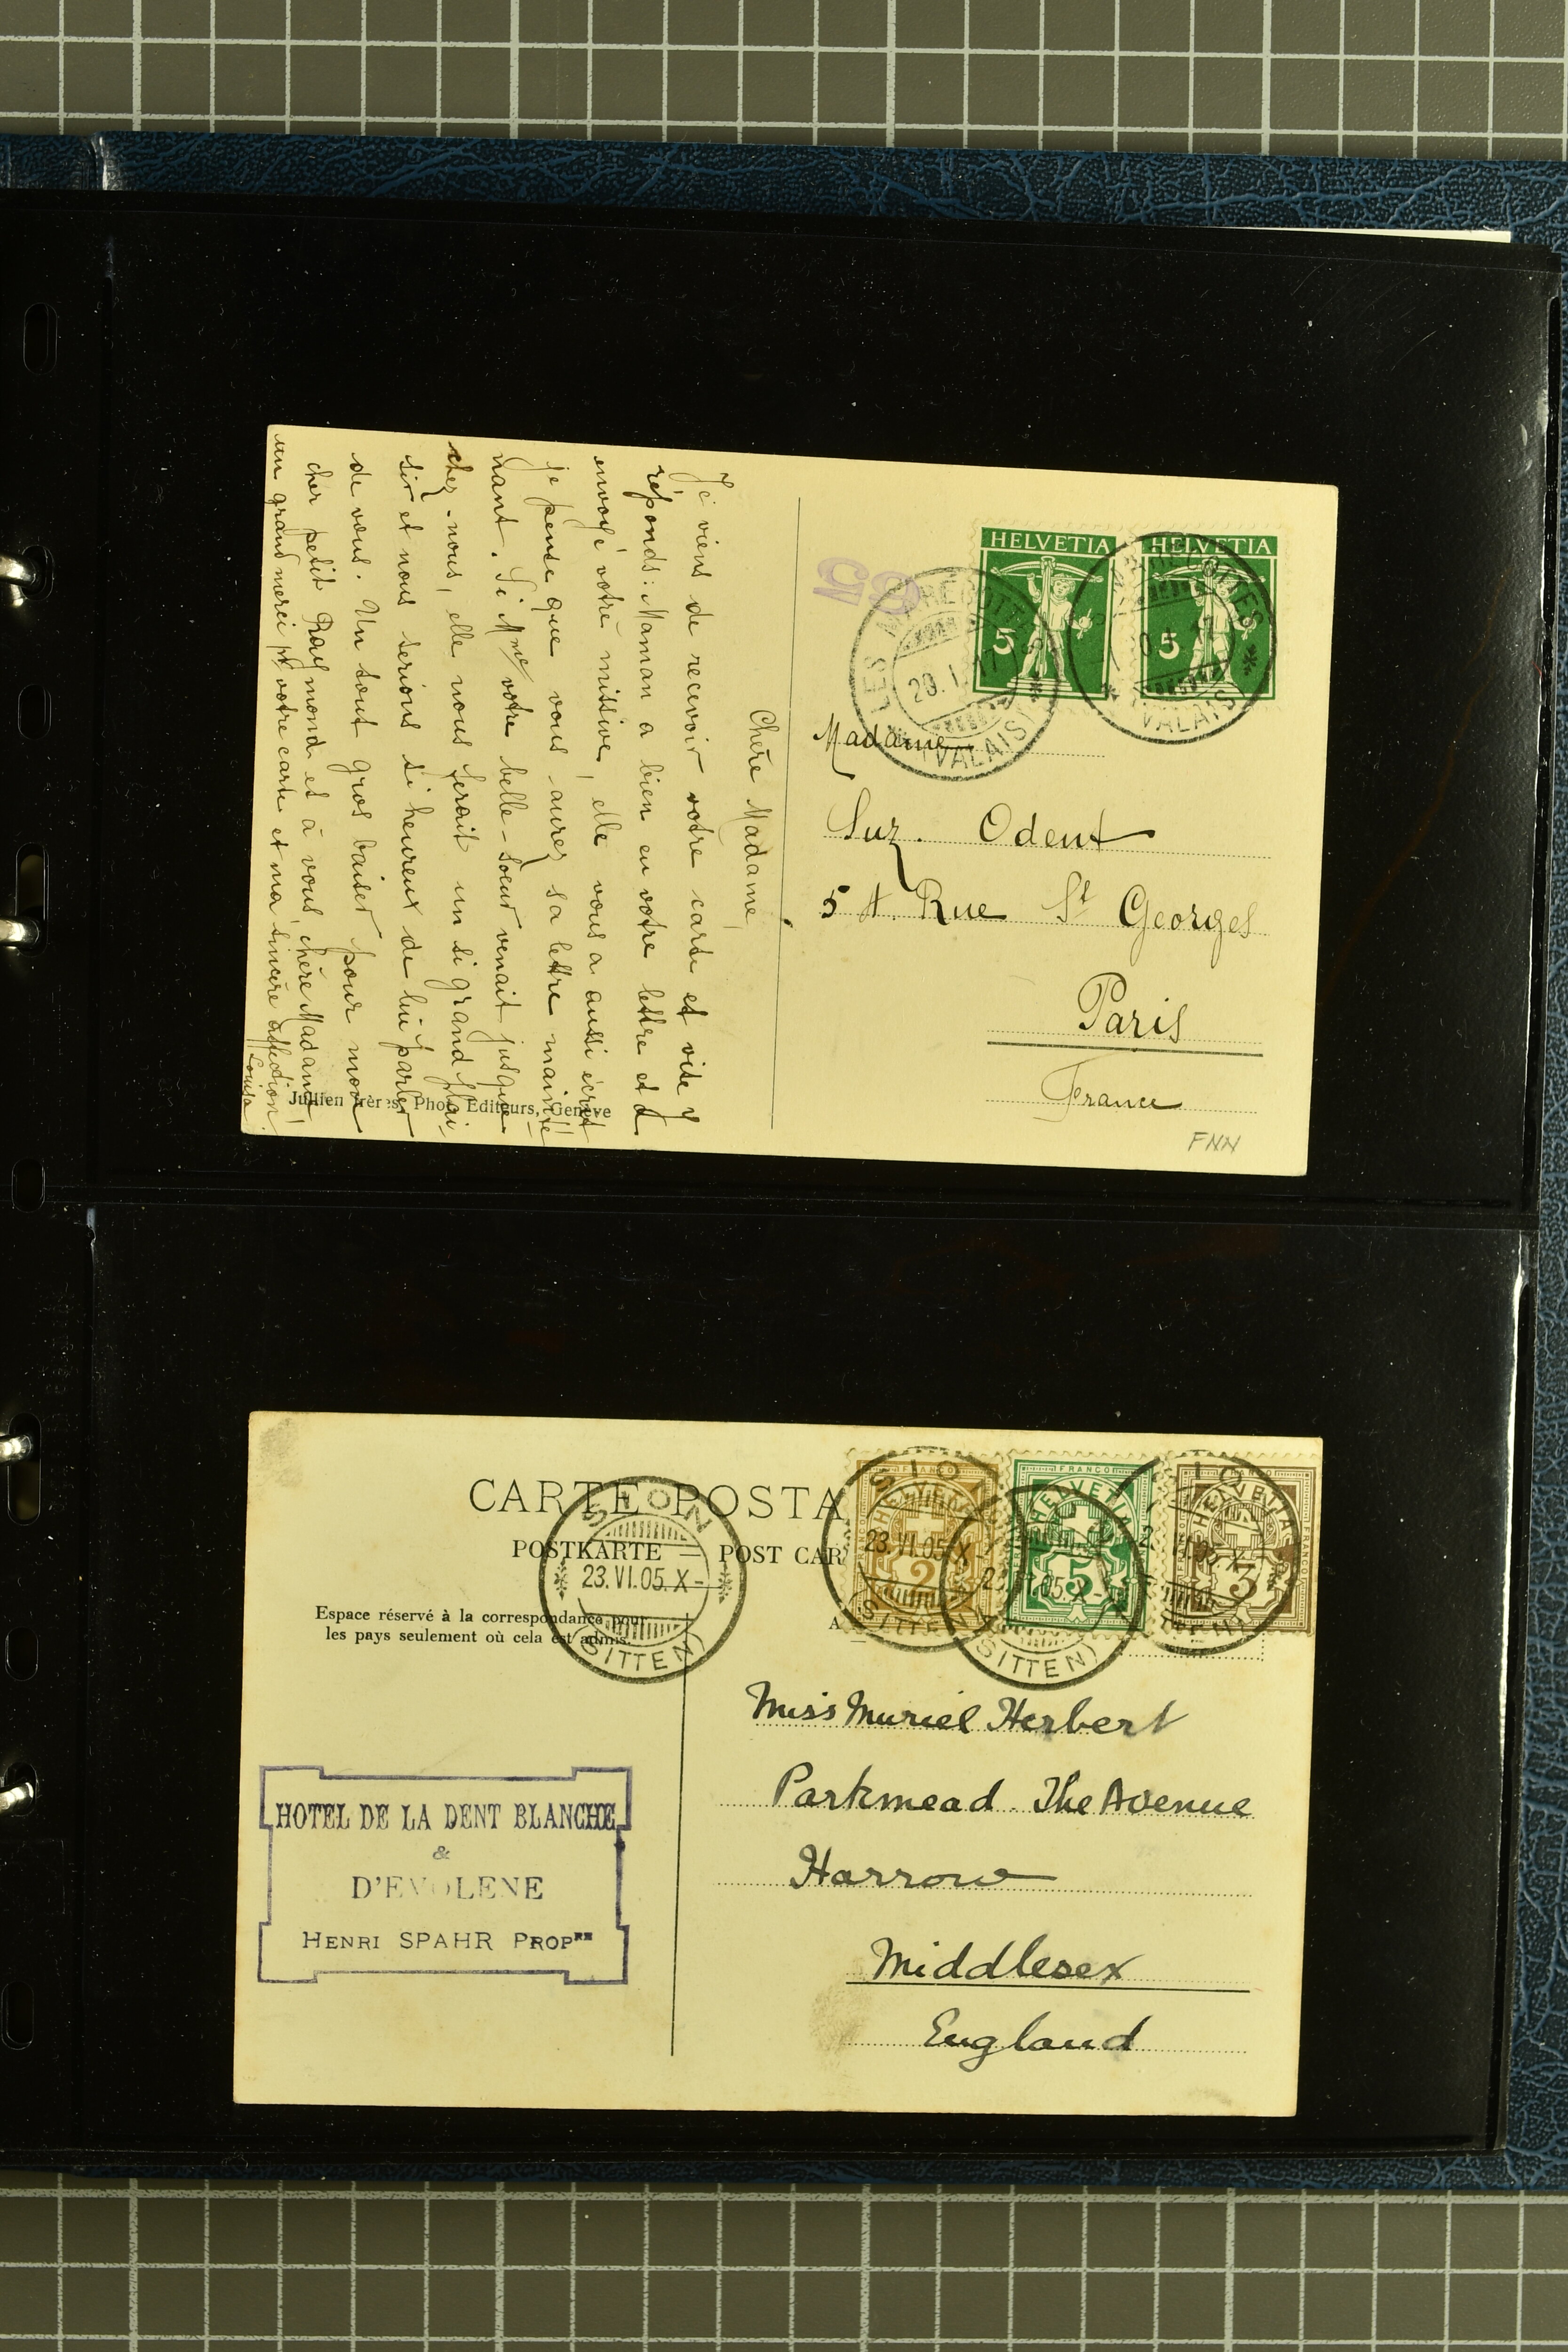 HELVETIA
5
HELVETIA
5
65
LES MARECOTTES
20.I.17
(VALAIS)
(VALAIS)
Chère Madame,
Je viens de recevoir votre carte et vite y
réponds: Maman a bien eu votre lettre et a
envoyé votre missive, elle vous a aussi écrit
je pense que vous aurez sa lettre mainte
nant. Si Mme votre belle-sœur venait jusque
chez-nous, elle nous ferait un si grand plai-
sir et nous serions si heureux de lui parler
de vous. Un tout gros baiser pour mon
cher petit Raymond et à vous, chère Madame,
un grand merci pr votre carte et ma sincère affection!
Louisa.
Jullien frères, Phot. Editeurs, Genève
Madame
Suz. Odent
5 A. Rue St Georges
Paris
France
FNN
CARTE POSTA
POSTKARTE — POST CAR
Espace réservé à la correspondance pour
les pays seulement où cela est admis.
SION
23.VI.05.X-
(SITTEN)
SIO
23.VI.05.X-
(SITTEN)
FRANCO
HELVETIA
2
FRANCO
HELVETIA
5
05.X-
(SITTEN)
HELVETIA
3
Miss Muriel Herbert
Parkmead The Avenue
Harrow
Middlesex
England
HOTEL DE LA DENT BLANCHE
&
D'EVOLENE
HENRI SPAHR PROPRE